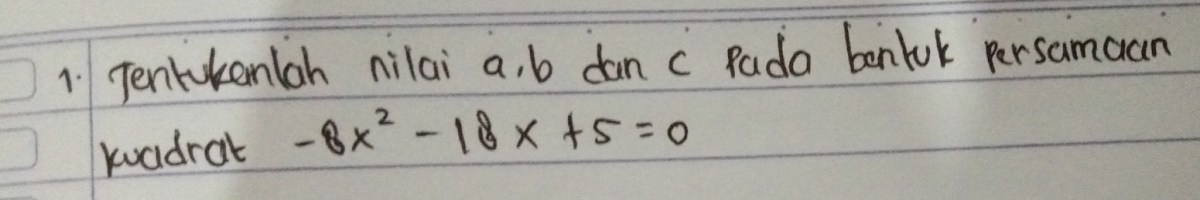 1. Tentukanlah nilai a, b dan c Pada bentuk Persamaan
kuadrat -8x² - 18x + 5 = 0